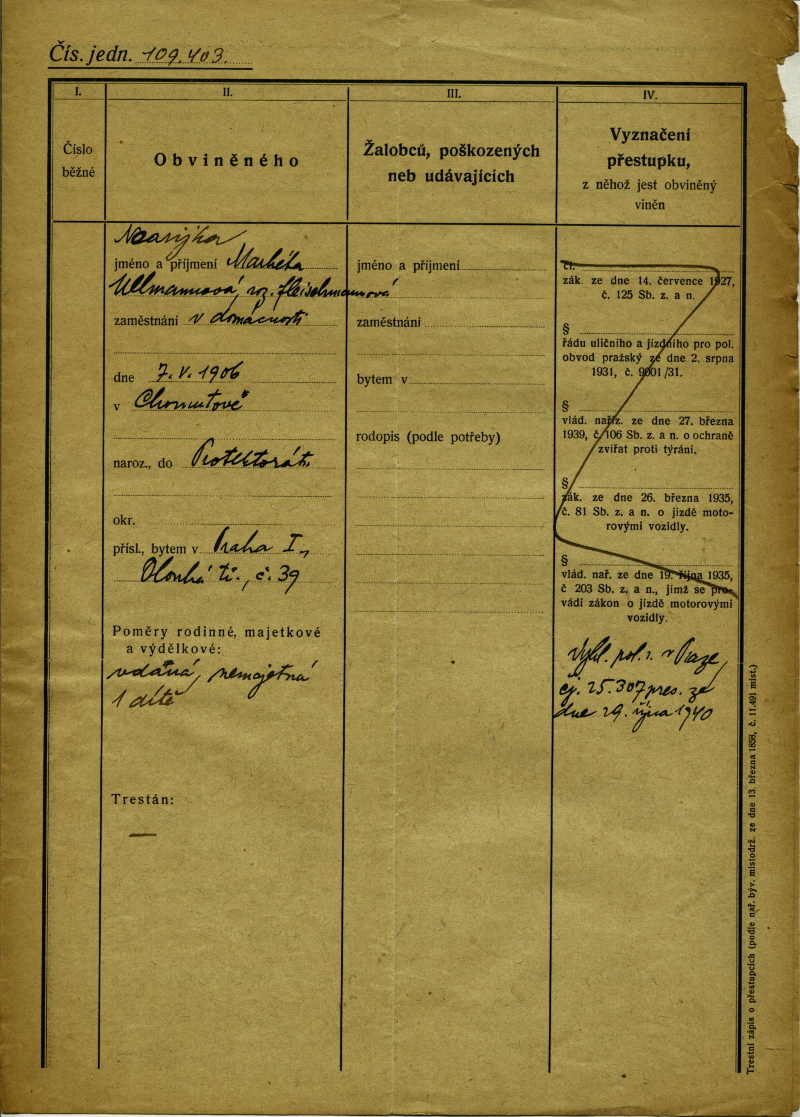 Čís. jedn. 109.403.
I.
Číslo
běžné
II.
Obviněného
III.
Žalobců, poškozených
neb udávajících
IV.
Vyznačení
přestupku,
z něhož jest obviněný
viněn
jméno a příjmení Markéta
Ullmannová, roz. Fleischmannová
zaměstnání v domácnosti
dne 7. V. 1906
v Chomutově
naroz., do Protektorát.
okr.
přísl., bytem v Praha I.,
Dlouhá tř., č. 39
Poměry rodinné, majetkové
a výdělkové:
vdaná, nemajetná
1 dítě
Trestán:
—
jméno a příjmení
zaměstnání
bytem v
rodopis (podle potřeby)
čl.
zák. ze dne 14. července 1927,
č. 125 Sb. z. a n.
§
řádu uličního a jízdního pro pol.
obvod pražský ze dne 2. srpna
1931, č. 9001/31.
§
vlád. nařiz. ze dne 27. března
1939, č. 106 Sb. z. a n. o ochraně
zvířat proti týrání.
§
zák. ze dne 26. března 1935,
č. 81 Sb. z. a n. o jízdě moto-
rovými vozidly.
§
vlád. nař. ze dne 19. října 1935,
č 203 Sb. z. a n., jímž se pro-
vádí zákon o jízdě motorovými
vozidly.
Vyhl. pol. ř. v Praze,
čj. 25.307 pres. ze
dne 29. října 1940
Trestní zápis o přestupcích (podle nař. býv. místodrž. ze dne 13. března 1858, č. 11.491 míst.)